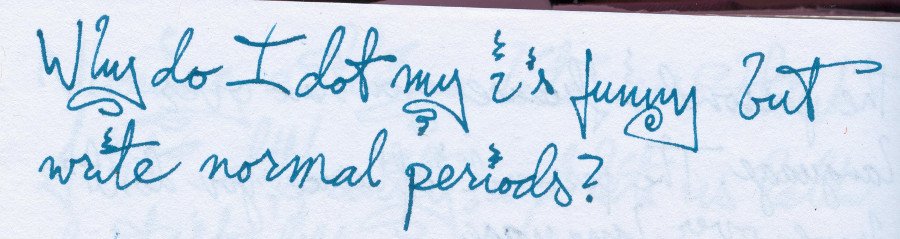 Why do I dot my i's funny but
write normal periods?